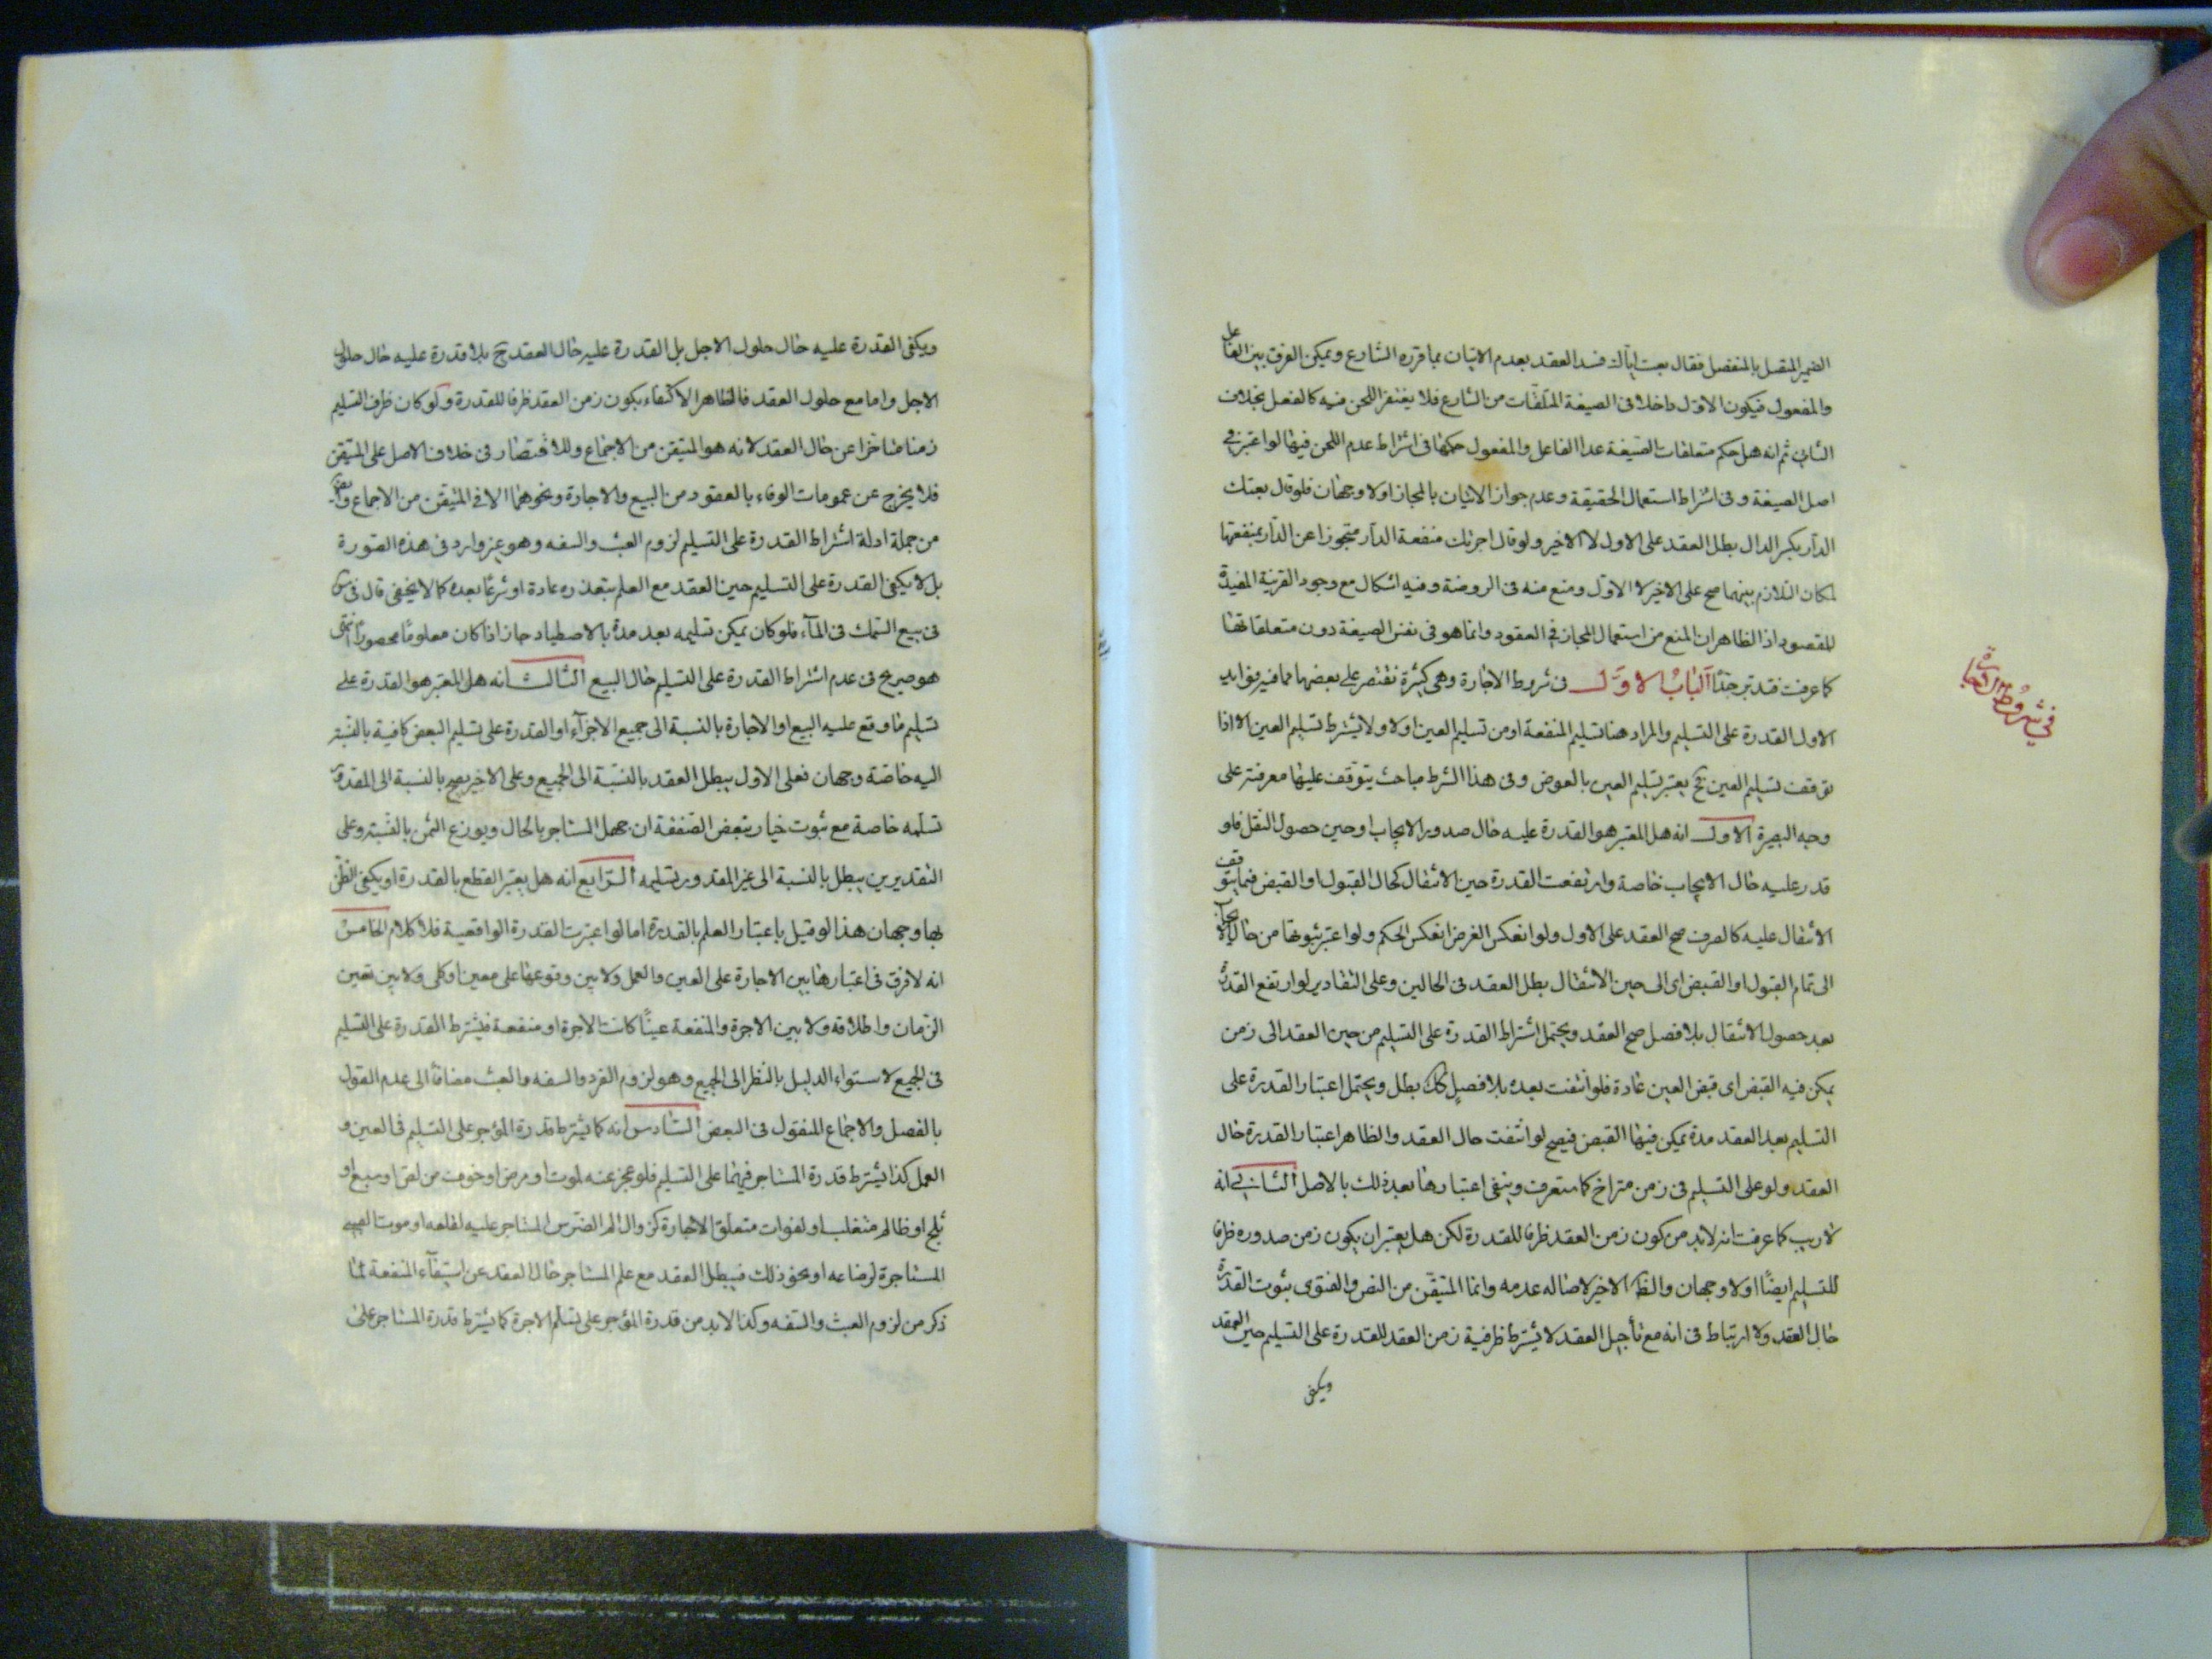 الضمير المتصل بالمنفصل فقال بعت اياك فسد العقد بعدم الاتيان بما قرره الشارع ويمكن الفرق بين الفاعل
والمفعول فيكون الاول داخلا فى الصيغة المتلقات من الشارع فلا يغتفر اللحن فيه كالفعل بخلاف
الثانى ثم انه هل حكم متعلقات الصيغة عدا الفاعل والمفعول حكمها فى اشتراط عدم اللحن فيها لو اعتبر فى
اصل الصيغة وفى اشتراط استعمال الحقيقة وعدم جواز الاتيان بالمجاز اولا وجهان فلو قال بعتك
الدار بكسر الدال بطل العقد على الاول لا الاخير ولو قال اجرتك منفعة الدار متجوزا عن الدار بمنفعتها
لمكان التلازم بينهما صح على الاخير لا الاول ومنع منه فى الروضة وفيه اشكال مع وجود القرينة المفيدة
للمقصود اذ الظاهر ان المنع من استعمال المجاز فى العقود وانما هو فى نفس الصيغة دون متعلقاتها
كما عرفت فتدبر جدّا الباب الاول فى شروط الاجارة وهى كثيرة نقتصر على بعضها مما فيه فوايد
فى شروط الاجارة
الاول القدرة على التسليم والمراد هنا تسليم المنفعة او من تسليم العين اولا ولا يشترط تسليم العين الا اذا
توقفت تسليم العين فح يعتبر تسليم العين بالعوض وفى هذا الشرط مباحث يتوقف عليها معرفته على
وجه البصيرة الاول انه هل المعتبر هو القدرة عليه حال صدور الايجاب او حين حصول النقل فلو
قدر عليه حال الايجاب خاصة وارتفعت القدرة حين الانتقال كحال القبول او القبض فيما يتوقف
الانتقال عليه كالصرف صح العقد على الاول ولو انعكس الفرض انعكس الحكم ولو اعتبر ثبوتها من حال الايجاب
الى تمام القبول او القبض اى الى حين الانتقال بطل العقد فى الحالين وعلى التقادير لو ارتفع القدرة
بعد حصول الانتقال بلا فصل صح العقد ويحتمل اشتراط القدرة على التسليم من حين العقد الى زمن
يمكن فيه القبض اى قبض العين عادة فلو انتفت بعده بلا فصل كك بطل ويحتمل اعتبار القدرة على
التسليم بعد العقد مدة يمكن فيها القبض فيصح لو انتفت حال العقد والظاهر اعتبار القدرة حال
العقد ولو على التسليم فى زمن متراخ كما ستعرف وينفى اعتبارها بعد ذلك بالاصل الثانى انه
لا ريب كما عرفت انه لابد من كون زمن العقد ظرفا للقدرة لكن هل يعتبر ان يكون زمن صدوره ظرفا
للتسليم ايضًا اولا وجهان والظ الاخير لاصاله عدمه وانما المتيقن من النص والفتوى ثبوت القدرة
حال العقد ولا ارتباط فى انه مع تأجيل العقد لا يشترط ظرفية زمن العقد للقدرة على التسليم حين العقد
ويكفى
ويكفى القدرة عليه حال حلول الاجل بل القدرة عليه حال العقد ح بلا قدرة عليه حال حلول
الاجل واما مع حلول العقد فالظاهر الاكتفاء بكون زمن العقد ظرفا للقدرة ولو كان ظرف التسليم
زمنا متاخرا عن حال العقد لانه هو المتيقن من الاجماع وللاقتصار فى خلاف الاصل على المتيقن
فلا يخرج عن عمومات الوفاء بالعقود من البيع والاجارة ونحوهما الا فى المتيقن من الاجماع وايضا
من جملة ادلة اشتراط القدرة على التسليم لزوم العبث والسفه وهو غير وارد فى هذه الصورة
بل لا يكفى القدرة على التسليم حين العقد مع العلم بتعذره عادة او شرعًا بعده كما لا يخفى قال فى
فى بيع السمك فى المآء فلو كان يمكن تسليمه بعد مدة بالاصطياد جاز اذا كان معلومًا محصورًا انتهى
هو صريح فى عدم اشتراط القدرة على التسليم حال البيع الثالث انه هل المعتبر هو القدرة على
تسليم ما وقع عليه البيع او الاجارة بالنسبة الى جميع الاجزآء او القدرة على تسليم البعض كافية بالنسبة
اليه خاصّة وجهان فعلى الاول يبطل العقد بالنسبة الى الجميع وعلى الاخير يصح بالنسبة الى المقدور
تسلمه خاصة مع ثبوت خيار تبعض الصفقة ان جهل المستاجر بالحال ويوزع الثمن بالنسبة وعلى
التقديرين يبطل بالنسبة الى غير المقدور تسليمه الرابع انه هل يعتبر القطع بالقدرة او يكفى الظن
بها وجهان هذا لو قيل باعتبار العلم بالقدرة اما لو اعتبرت القدرة الواقعية فلا كلام الخامس
انه لا فرق فى اعتبارها بين الاجارة على العين والعمل ولا بين وقوعها على معين او كلى ولا بين تعيين
الزمان واطلاقه ولا بين الاجرة والمنفعة عينًا كانت الاجرة او منفعة فيشترط القدرة على التسليم
فى الجميع لاستواء الدليل بالنظر الى الجميع وهو لزوم الغرر والسفه والعبث مضافا الى عدم القول
بالفصل والاجماع المنقول فى البعض السادس انه كما يشترط قدرة المؤجر على التسليم فى العين و
العمل كذا يشترط قدرة المستاجر فيهما على التسليم فلو عجز عنه لموت او مرض او خوف من لص او سبع او
ثلج او ظالم متغلب او لفوات متعلق الاجارة كزوال الم الضرس المستاجر عليه لقلعه او موت الصبى
المستاجرة لرضاعه او نحو ذلك فيبطل العقد مع علم المستاجر حال العقد عن استيفآء المنفعة لما
ذكر من لزوم العبث والسفه وكذا لابد من قدرة المؤجر على تسلم الاجرة كما يشترط قدرة المستاجر على